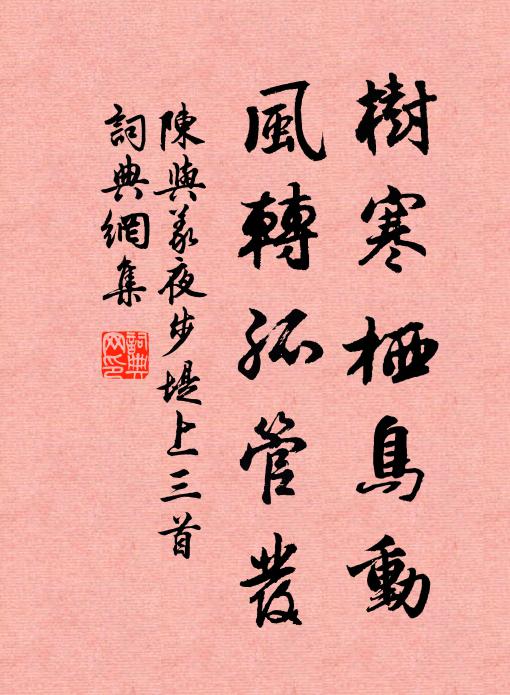 樹寒栖鳥動
風轉孤管發
陳與義夜步堤上三首
詞典網集
詞典網印